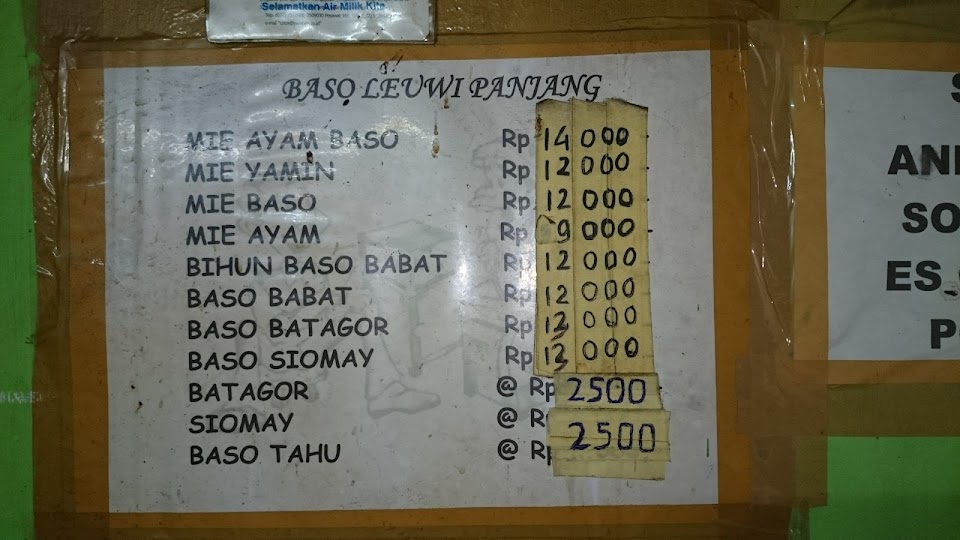 Selamatkan Air Milik Kita
BASO LEUWI PANJANG
MIE AYAM BASO Rp 14 000
MIE YAMIN Rp 12 000
MIE BASO Rp 12 000
MIE AYAM Rp 9 000
BIHUN BASO BABAT Rp 12 000
BASO BABAT Rp 12 000
BASO BATAGOR Rp 12 000
BASO SIOMAY Rp 12 000
BATAGOR @ Rp 2500
SIOMAY @ R 2500
BASO TAHU @ Rp
S
ANE
SO
ES
P